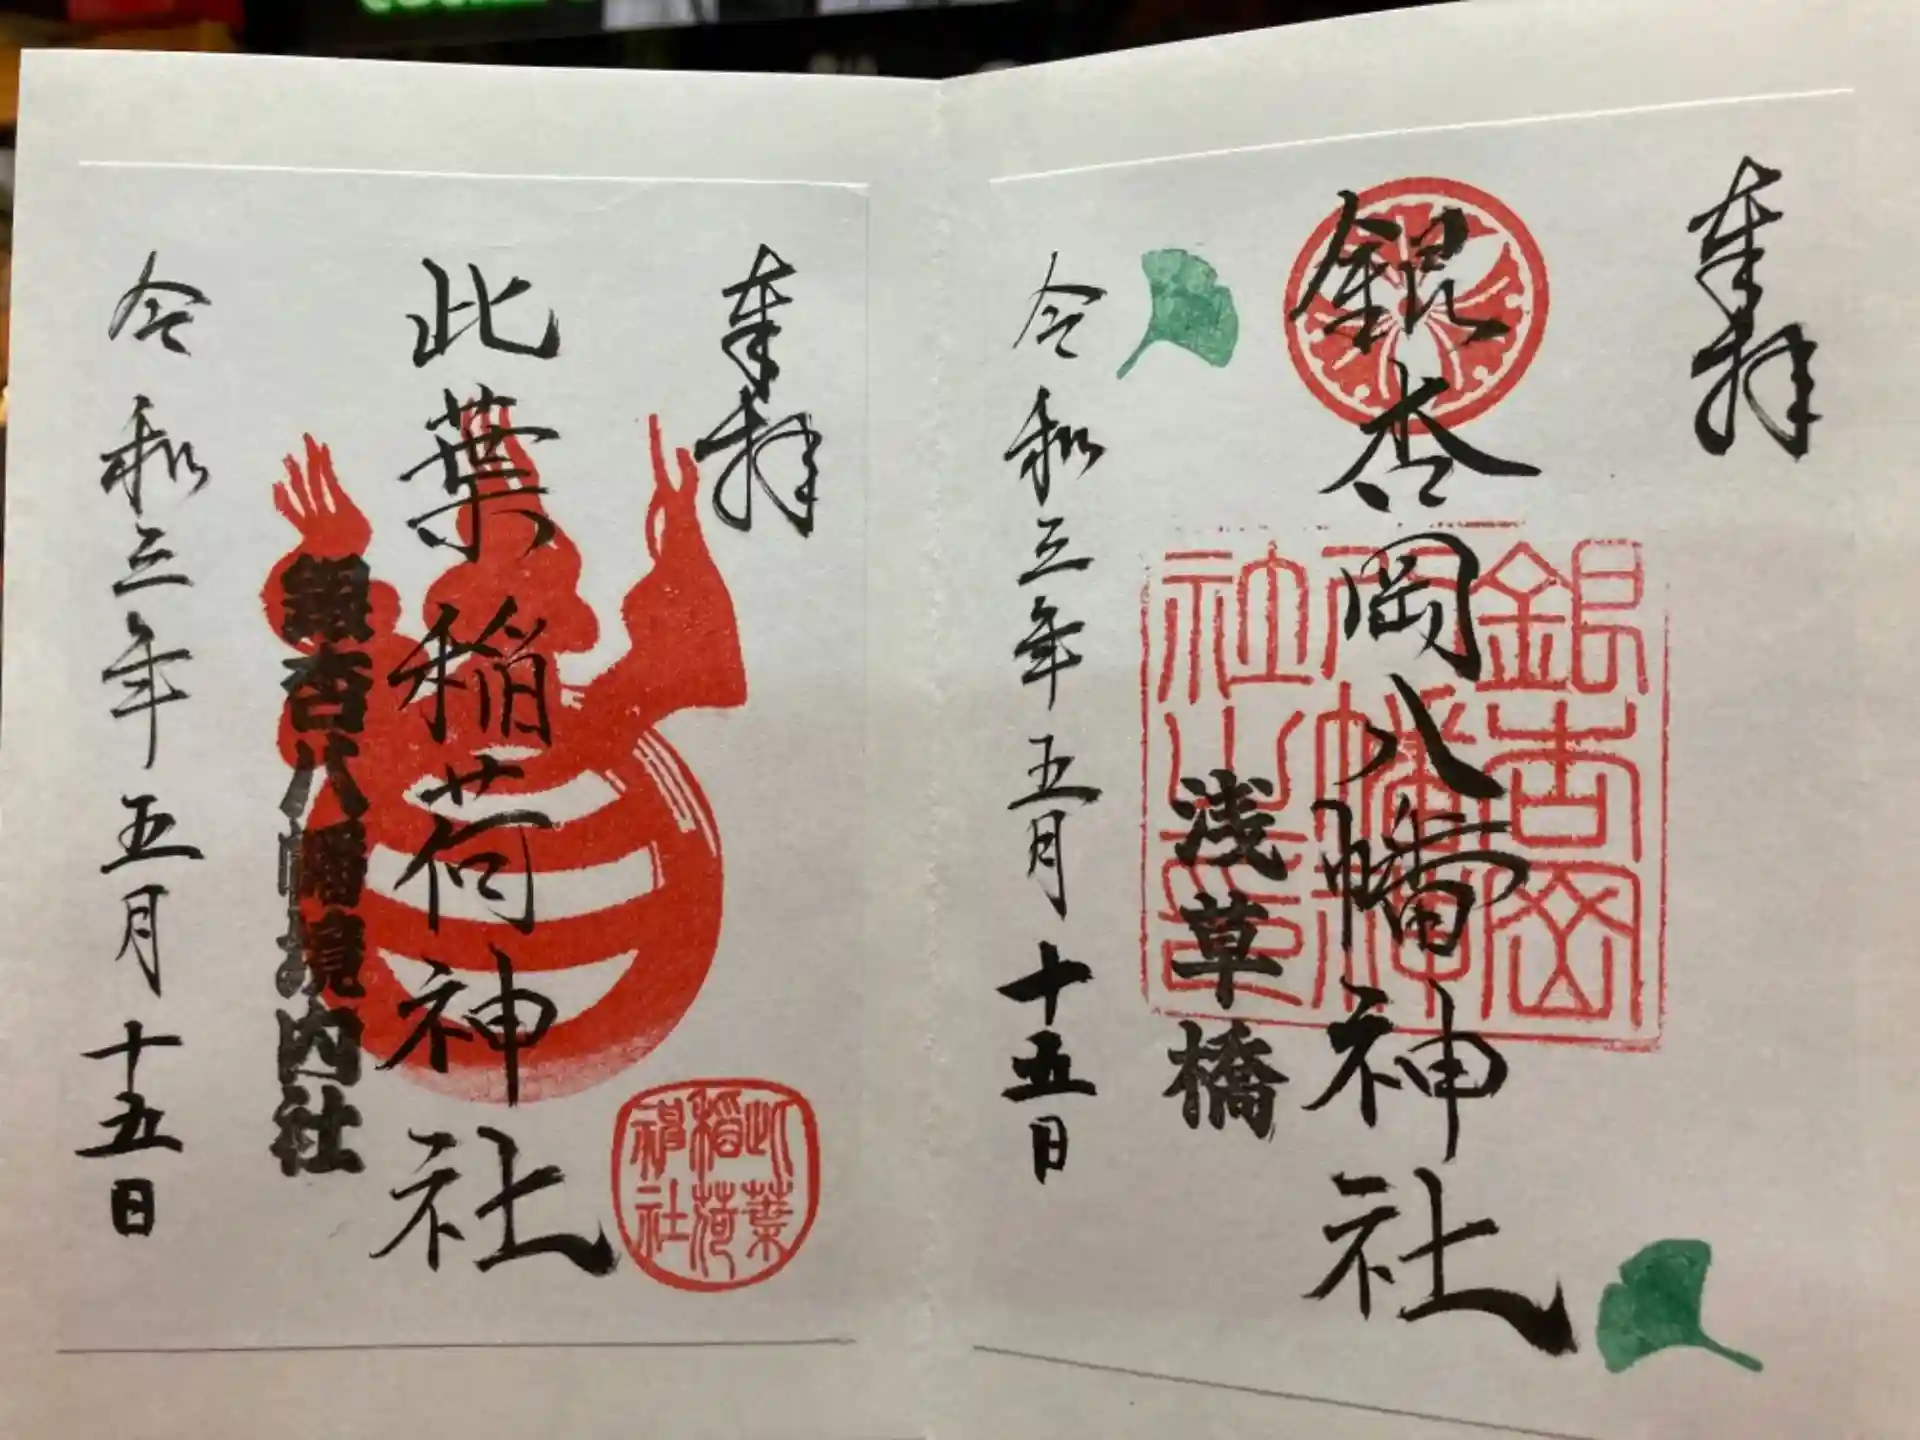 奉拝
銀杏岡八幡神社
浅草橋
令和三年五月十五日
銀杏岡
八幡神
社之印
奉拝
此葉稲荷神社
銀杏八幡境内社
令和三年五月十五日
此葉
稲荷
神社